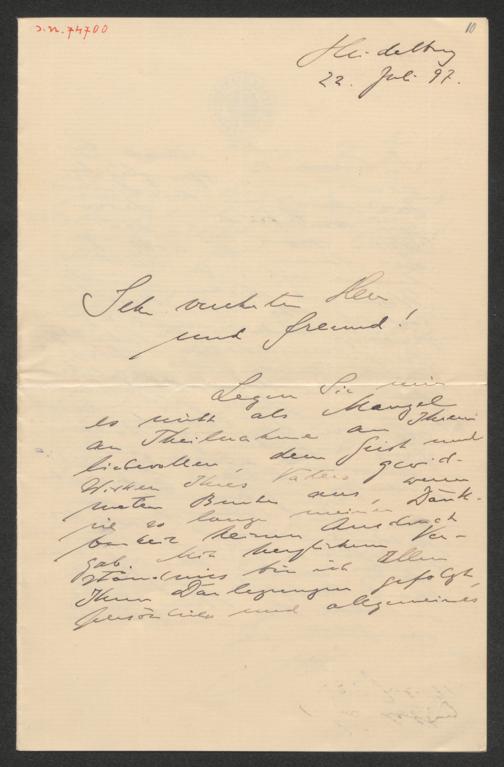 J.N. 74700
10
Heidelberg
22. Juli 97.
Sehr verehrter Herr
und Freund!
Legen Sie mir
es nicht als Mangel
an Theilnahme an Ihrem
liebevollen, dem Geist und
Wirken Ihres Vaters gewid-
meten Buche aus, wenn
ich so lange meiner Dank-
barkeit keinen Ausdruck
gab. Mit herzlichem Ver-
ständnis bin ich allen
Ihren Darlegungen gefolgt,
persönliches und allgemeines